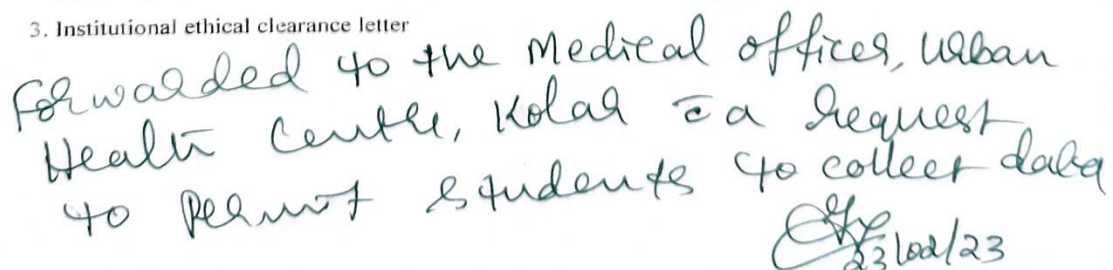 3. Institutional ethical clearance letter
Forwarded to the Medical officer, Urban
Health Centre, Kolar c̄ a request
to permit students to collect data
23/02/23